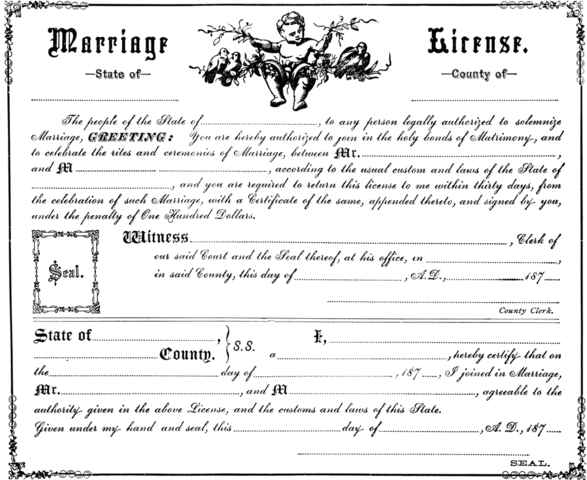 Marriage License.
State of County of
The people of the State of , to any person legally authorized to solemnize
Marriage, GREETING: You are hereby authorized to join in the holy bonds of Matrimony, and
to celebrate the rites and ceremonies of Marriage, between Mr. ,
and M , according to the usual custom and laws of the State of
, and you are required to return this license to me within thirty days, from
the celebration of such Marriage, with a Certificate of the same, appended thereto, and signed by you,
under the penalty of One Hundred Dollars.
Witness , Clerk of
our said Court and the Seal thereof, at his office, in
Seal.
in said County, this day of , A.D., 187
County Clerk.
State of , I,
County. } S.S. a , hereby certify that on
the day of , 187 , I joined in Marriage,
Mr. , and M , agreeable to the
authority given in the above License, and the customs and laws of this State.
Given under my hand and seal, this day of , A.D., 187
SEAL.